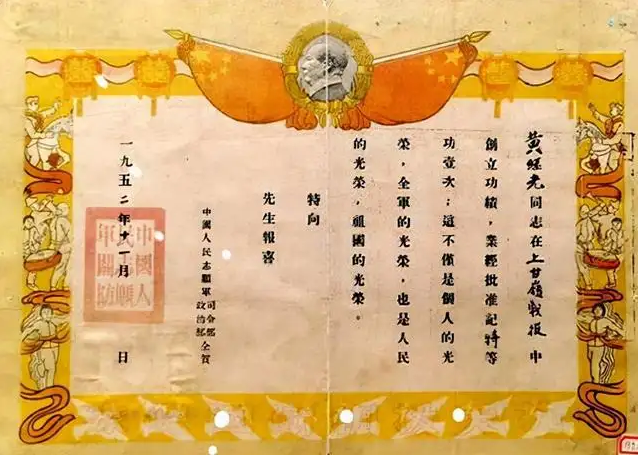 光榮
黃經光同志在上甘嶺戰役中
創立功績，業經批准記特等
功壹次；這不僅是個人的光
榮，全軍的光榮，也是人民
的光榮，祖國的光榮。
特向
先生報喜
中國人民志願軍司令部政治部仝賀
一九五二年十一月 日
中國人民志願軍關防